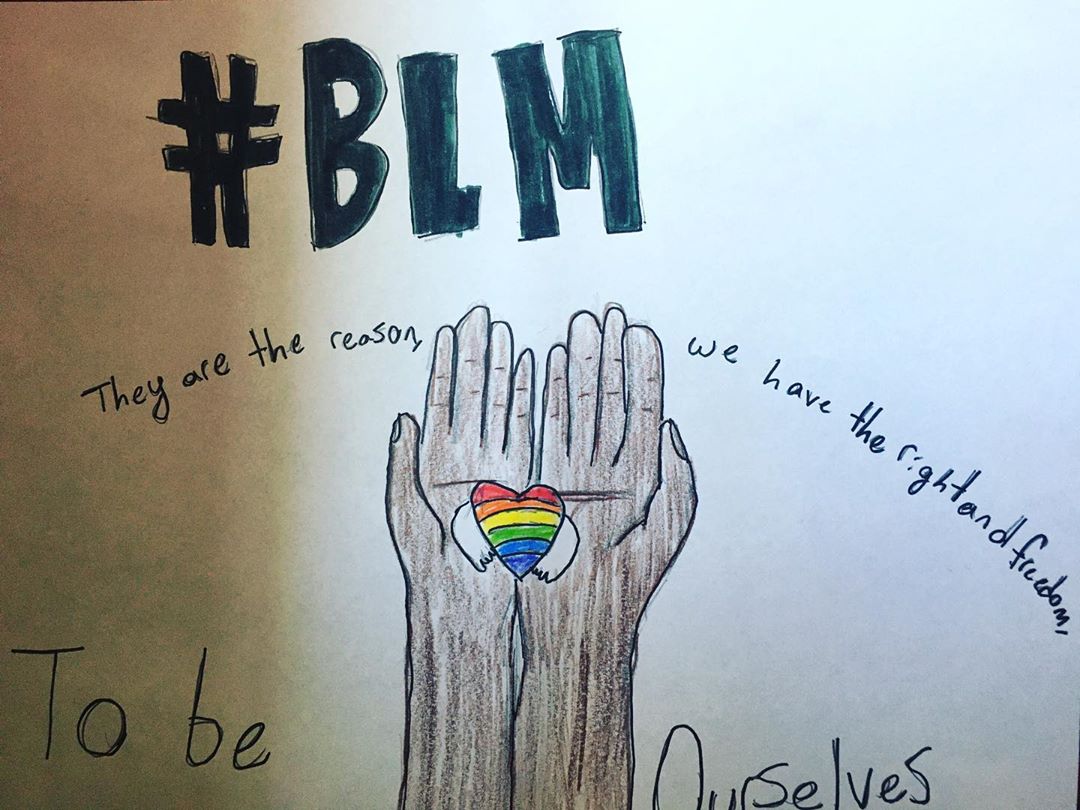 #BLM
They are the reason, we have the right and freedom,
To be Ourselves